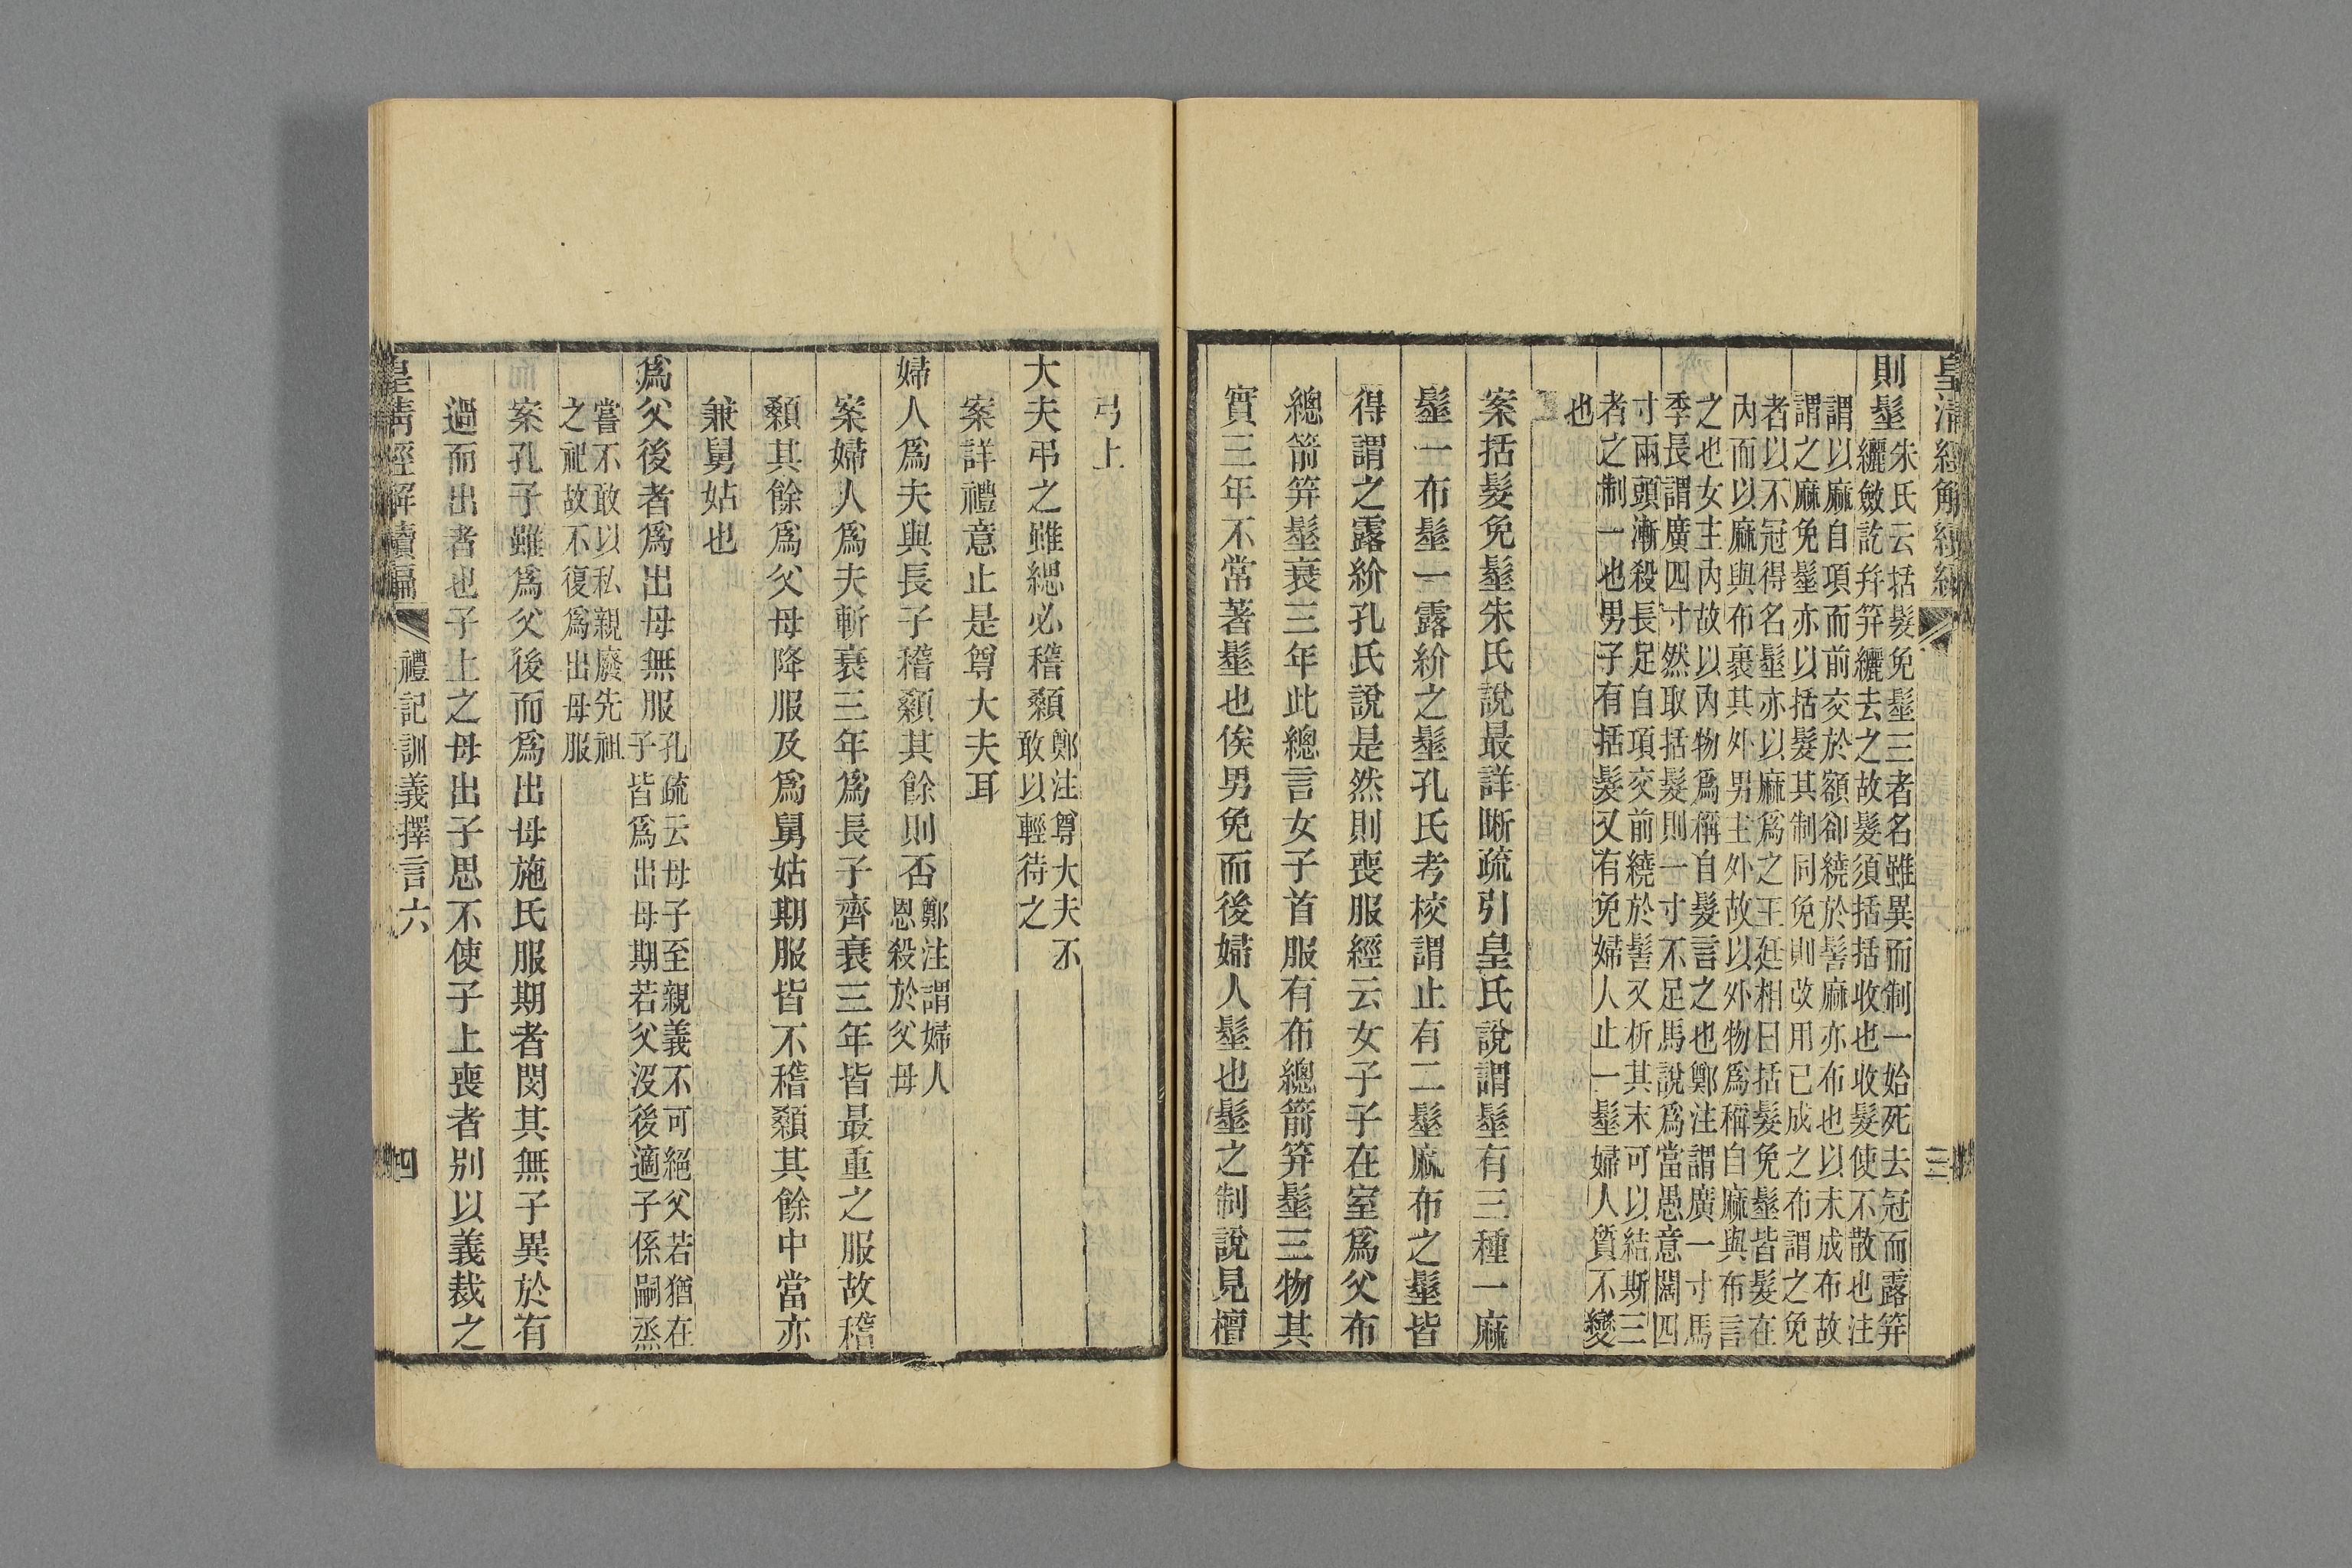 則髽
朱氏云括髮免髽三者名雖異而制一始死去冠而露笄
纚斂訖幷笄纚去之故髮須括括收也收髮使不散也注
謂以麻自項而前交於額卻繞於髻麻亦布也以未成布故
謂之麻免髽亦以括髮其制同免則改用已成之布謂之免
者以不冠得名髽亦以麻爲之王廷相曰括髮免髽皆髮在
內而以麻與布裹其外男主外故以外物爲稱自麻與布言
之也女主內故以內物爲稱自髮言之也鄭注謂廣一寸馬
季長謂廣四寸然取括髮則一寸不足馬說爲當愚意闊四
寸兩頭漸殺長足自項交前繞於髻又析其末可以結斯三
者之制一也男子有括髮又有免婦人止一髽婦人質不變
也
案括髮免髽朱氏說最詳晰疏引皇氏說謂髽有三種一麻
髽一布髽一露紒之髽孔氏考校謂止有二髽麻布之髽皆
得謂之露紒孔氏說是然則喪服經云女子子在室爲父布
總箭笄髽衰三年此總言女子首服有布總箭笄髽三物其
實三年不常著髽也俟男免而後婦人髽也髽之制說見檀
皇清經解續編
三
弓上
大夫弔之雖緦必稽顙
鄭注尊大夫不
敢以輕待之
案詳禮意止是尊大夫耳
婦人爲夫與長子稽顙其餘則否
鄭注謂婦人
恩殺於父母
案婦人爲夫斬衰三年爲長子齊衰三年皆最重之服故稽
顙其餘爲父母降服及爲舅姑期服皆不稽顙其餘中當亦
兼舅姑也
爲父後者爲出母無服
孔疏云母子至親義不可絕父若猶在
子皆爲出母期若父沒後適子係嗣烝
嘗不敢以私親廢先祖
之祀故不復爲出母服
案孔子雖爲父後而爲出母施氏服期者閔其無子異於有
過而出者也子上之母出子思不使子上喪者別以義裁之
皇清經解續編
禮記訓義擇言六
四